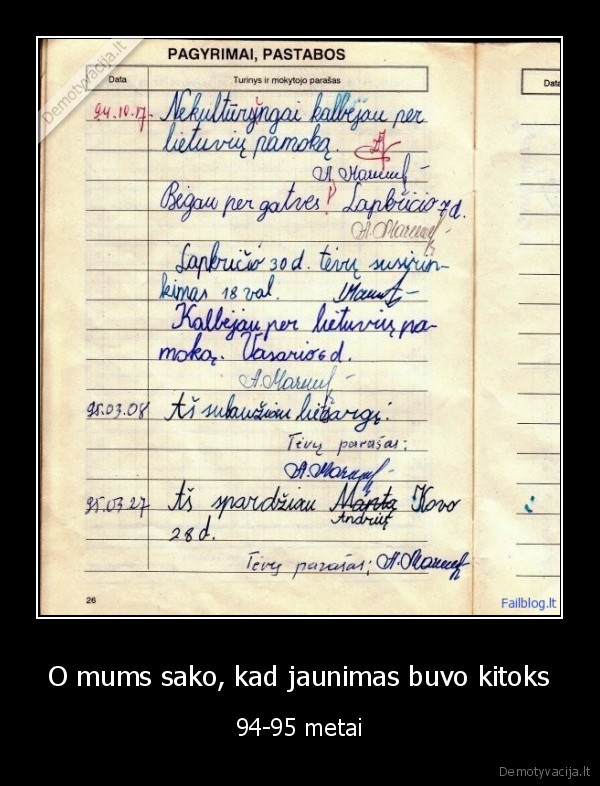 PAGYRIMAI, PASTABOS
Data
Turinys ir mokytojo parašas
Data
Demotyvacija.lt
94.10.17. Nekultūringai kalbėjau per
lietuvių pamoką.
Bėgau per gatvęs! Lapkričio 7 d.
Lapkričio 30 d. tėvų susirin-
kimas 18 val.
Kalbėjau per lietuvių pa-
moką. Vasario 6 d.
95.03.08 Aš sulaužiau
Tėvų parašas:
95.03.27 Aš spardžiau Mantą Kovo
Andrių
28 d.
Tėvų parašas:
26
Failblog.lt
O mums sako, kad jaunimas buvo kitoks
94-95 metai
Demotyvacija.lt